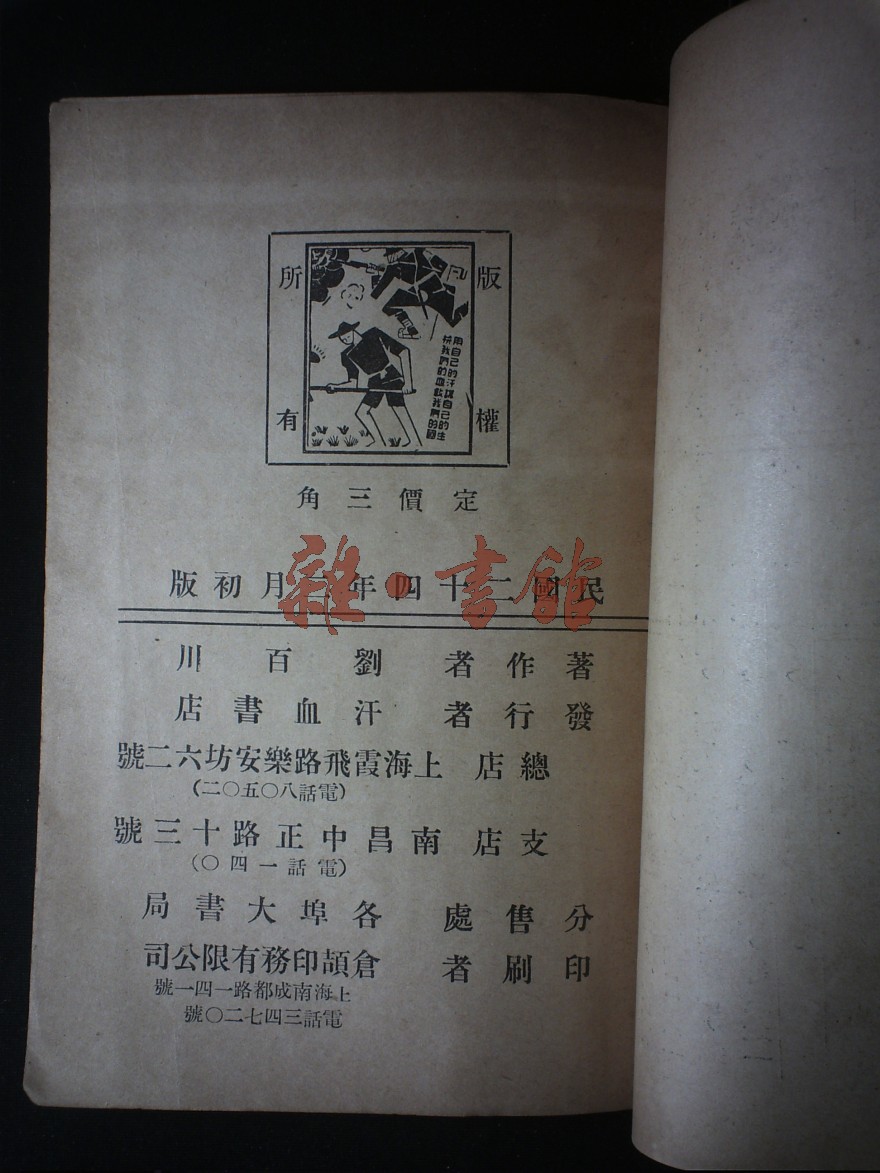 版權所有
用自己的汗謀自己的生
拚我們的血救我們的國
定價三角
民國二十四年 月初版
雜·書館
著作者 劉百川
發行者 汗血書店
總店 上海霞飛路樂安坊六二號
(電話八〇五〇二)
支店 南昌中正路十三號
(電話一四〇)
分售處 各埠大書局
印刷者 倉頡印務有限公司
上海南成都路一四一號
電話三四七二〇號